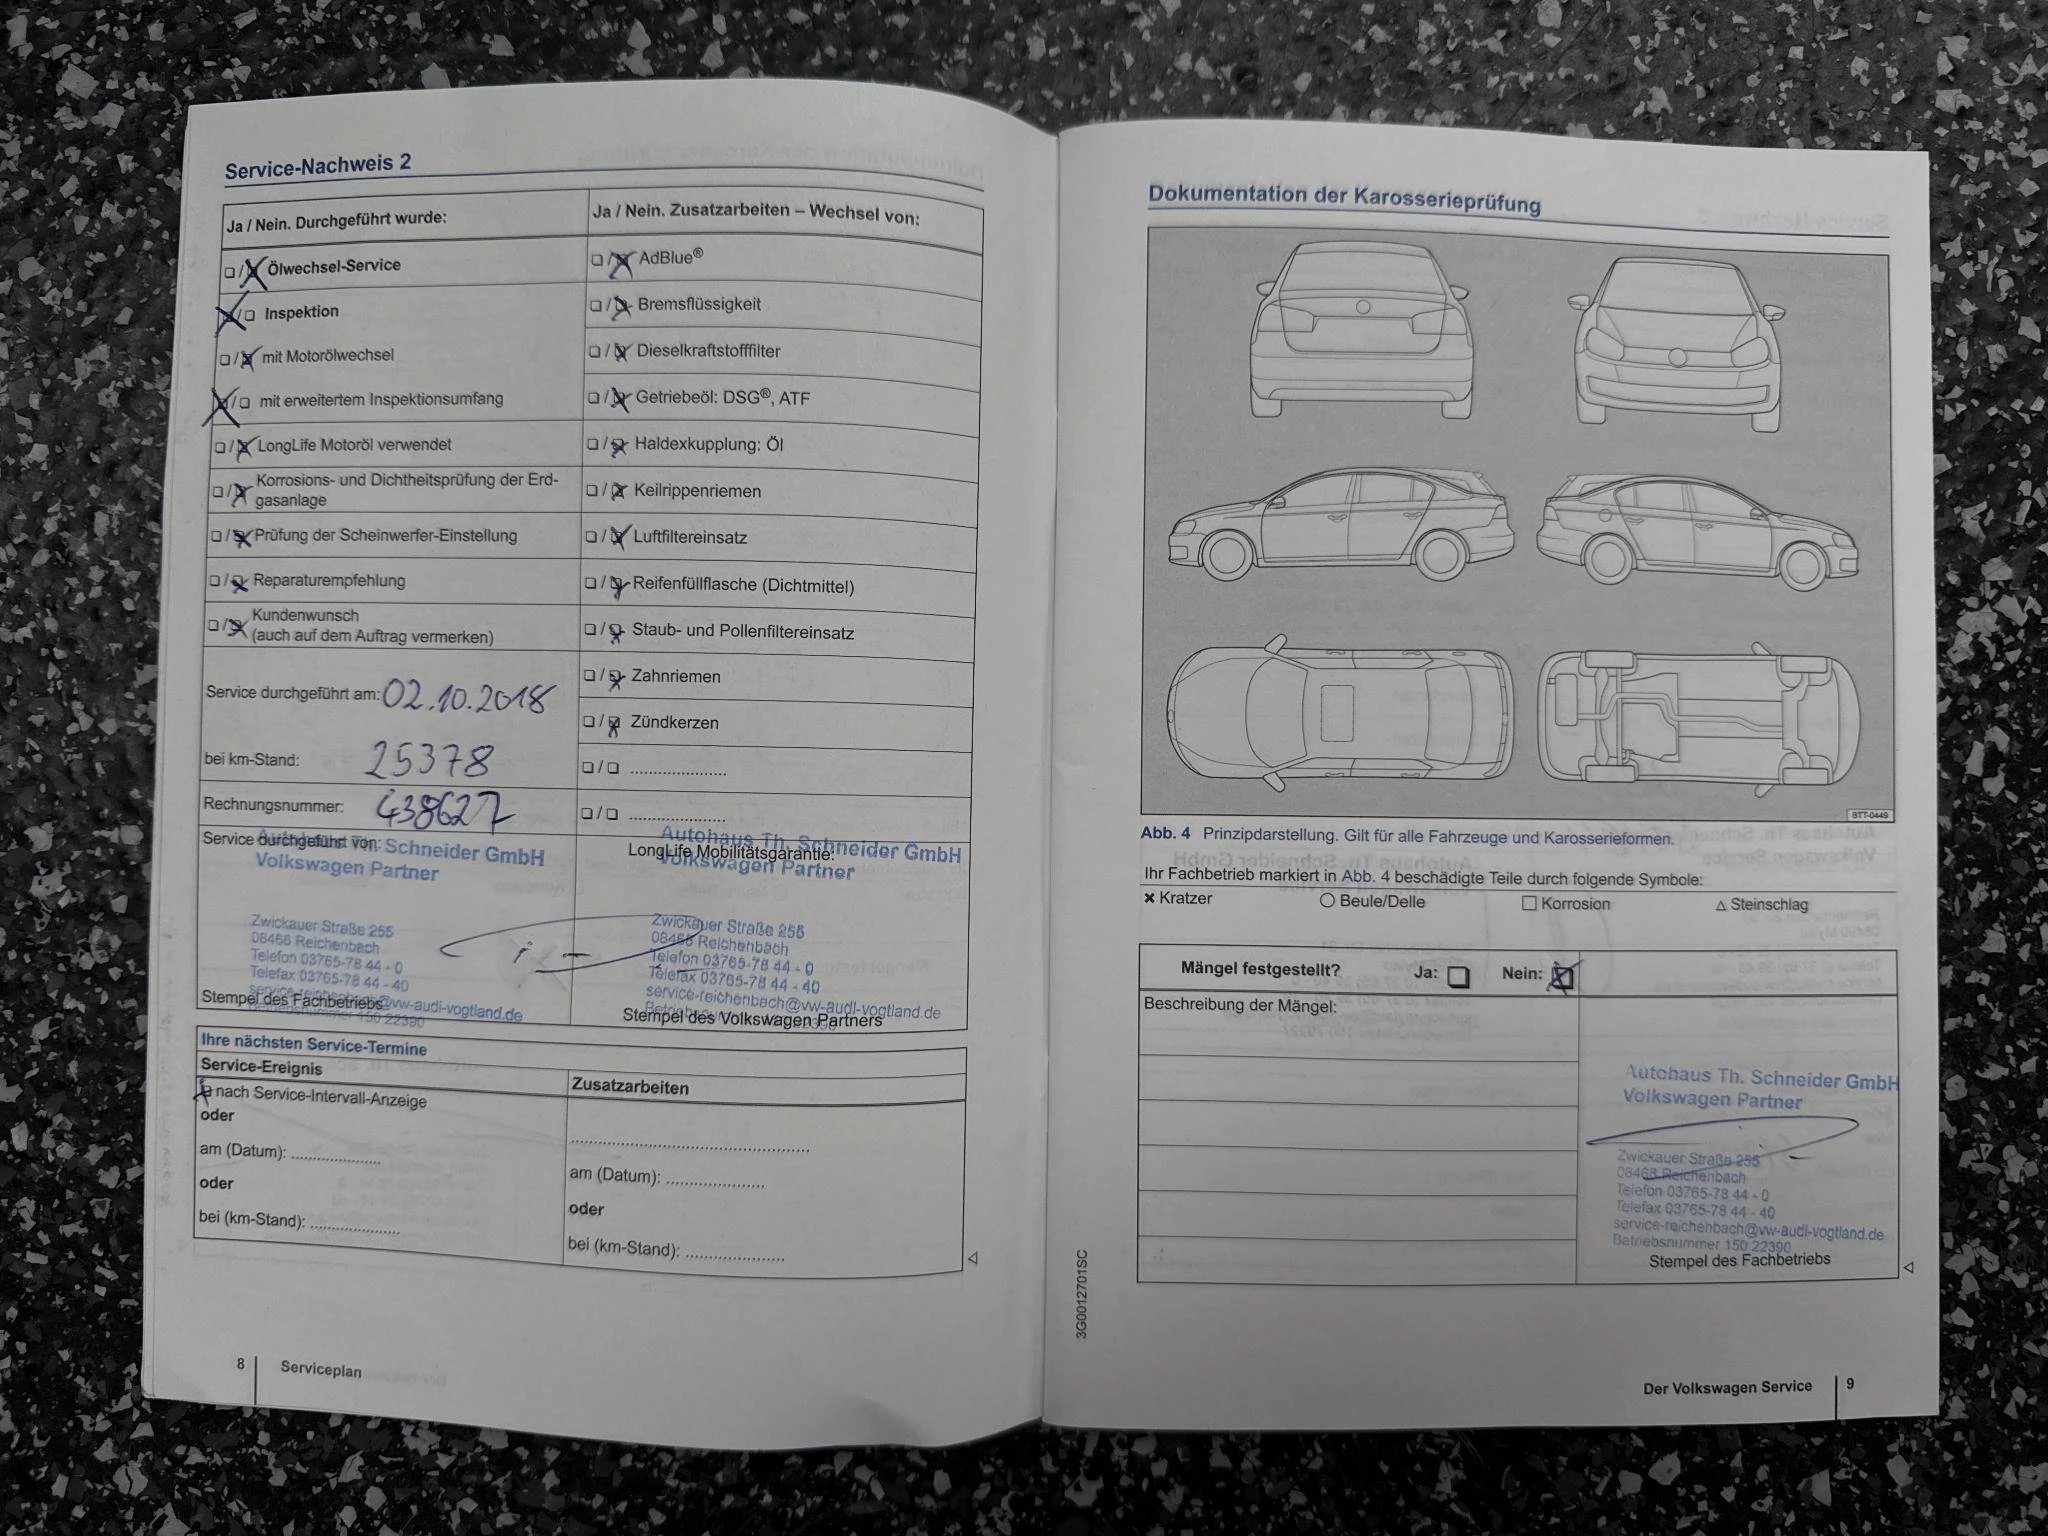 Service-Nachweis 2
Ja / Nein. Durchgeführt wurde:
Ölwechsel-Service
Inspektion
mit Motorölwechsel
mit erweitertem Inspektionsumfang
LongLife Motoröl verwendet
Korrosions- und Dichtheitsprüfung der Erd-
gasanlage
Prüfung der Scheinwerfer-Einstellung
Reparaturempfehlung
Kundenwunsch
(auch auf dem Auftrag vermerken)
Service durchgeführt am: 02.10.2018
bei km-Stand: 25378
Rechnungsnummer: 438627
Service durchgeführt von:
Autohaus Th. Schneider GmbH
Volkswagen Partner
Zwickauer Straße 255
08468 Reichenbach
Telefon 03765-78 44 - 0
Telefax 03765-78 44 - 40
service-reichenbach@vw-audi-vogtland.de
Betriebsnummer 150 22390
Stempel des Fachbetriebs
Ja / Nein. Zusatzarbeiten – Wechsel von:
AdBlue®
Bremsflüssigkeit
Dieselkraftstofffilter
Getriebeöl: DSG®, ATF
Haldexkupplung: Öl
Keilrippenriemen
Luftfiltereinsatz
Reifenfüllflasche (Dichtmittel)
Staub- und Pollenfiltereinsatz
Zahnriemen
Zündkerzen
LongLife Mobilitätsgarantie:
Autohaus Th. Schneider GmbH
Volkswagen Partner
Zwickauer Straße 255
08468 Reichenbach
Telefon 03765-78 44 - 0
Telefax 03765-78 44 - 40
service-reichenbach@vw-audi-vogtland.de
Betriebsnummer 150 22390
Stempel des Volkswagen Partners
Ihre nächsten Service-Termine
Service-Ereignis
nach Service-Intervall-Anzeige
oder
am (Datum): ....................
oder
bei (km-Stand): ....................
Zusatzarbeiten
am (Datum): ....................
oder
bei (km-Stand): ....................
8
Serviceplan
Dokumentation der Karosserieprüfung
BTT-0449
Abb. 4 Prinzipdarstellung. Gilt für alle Fahrzeuge und Karosserieformen.
Ihr Fachbetrieb markiert in Abb. 4 beschädigte Teile durch folgende Symbole:
Kratzer
Beule/Delle
Korrosion
Steinschlag
Mängel festgestellt? Ja: Nein:
Beschreibung der Mängel:
Autohaus Th. Schneider GmbH
Volkswagen Partner
Zwickauer Straße 255
08468 Reichenbach
Telefon 03765-78 44 - 0
Telefax 03765-78 44 - 40
service-reichenbach@vw-audi-vogtland.de
Betriebsnummer 150 22390
Stempel des Fachbetriebs
3G0012701SC
Der Volkswagen Service
9